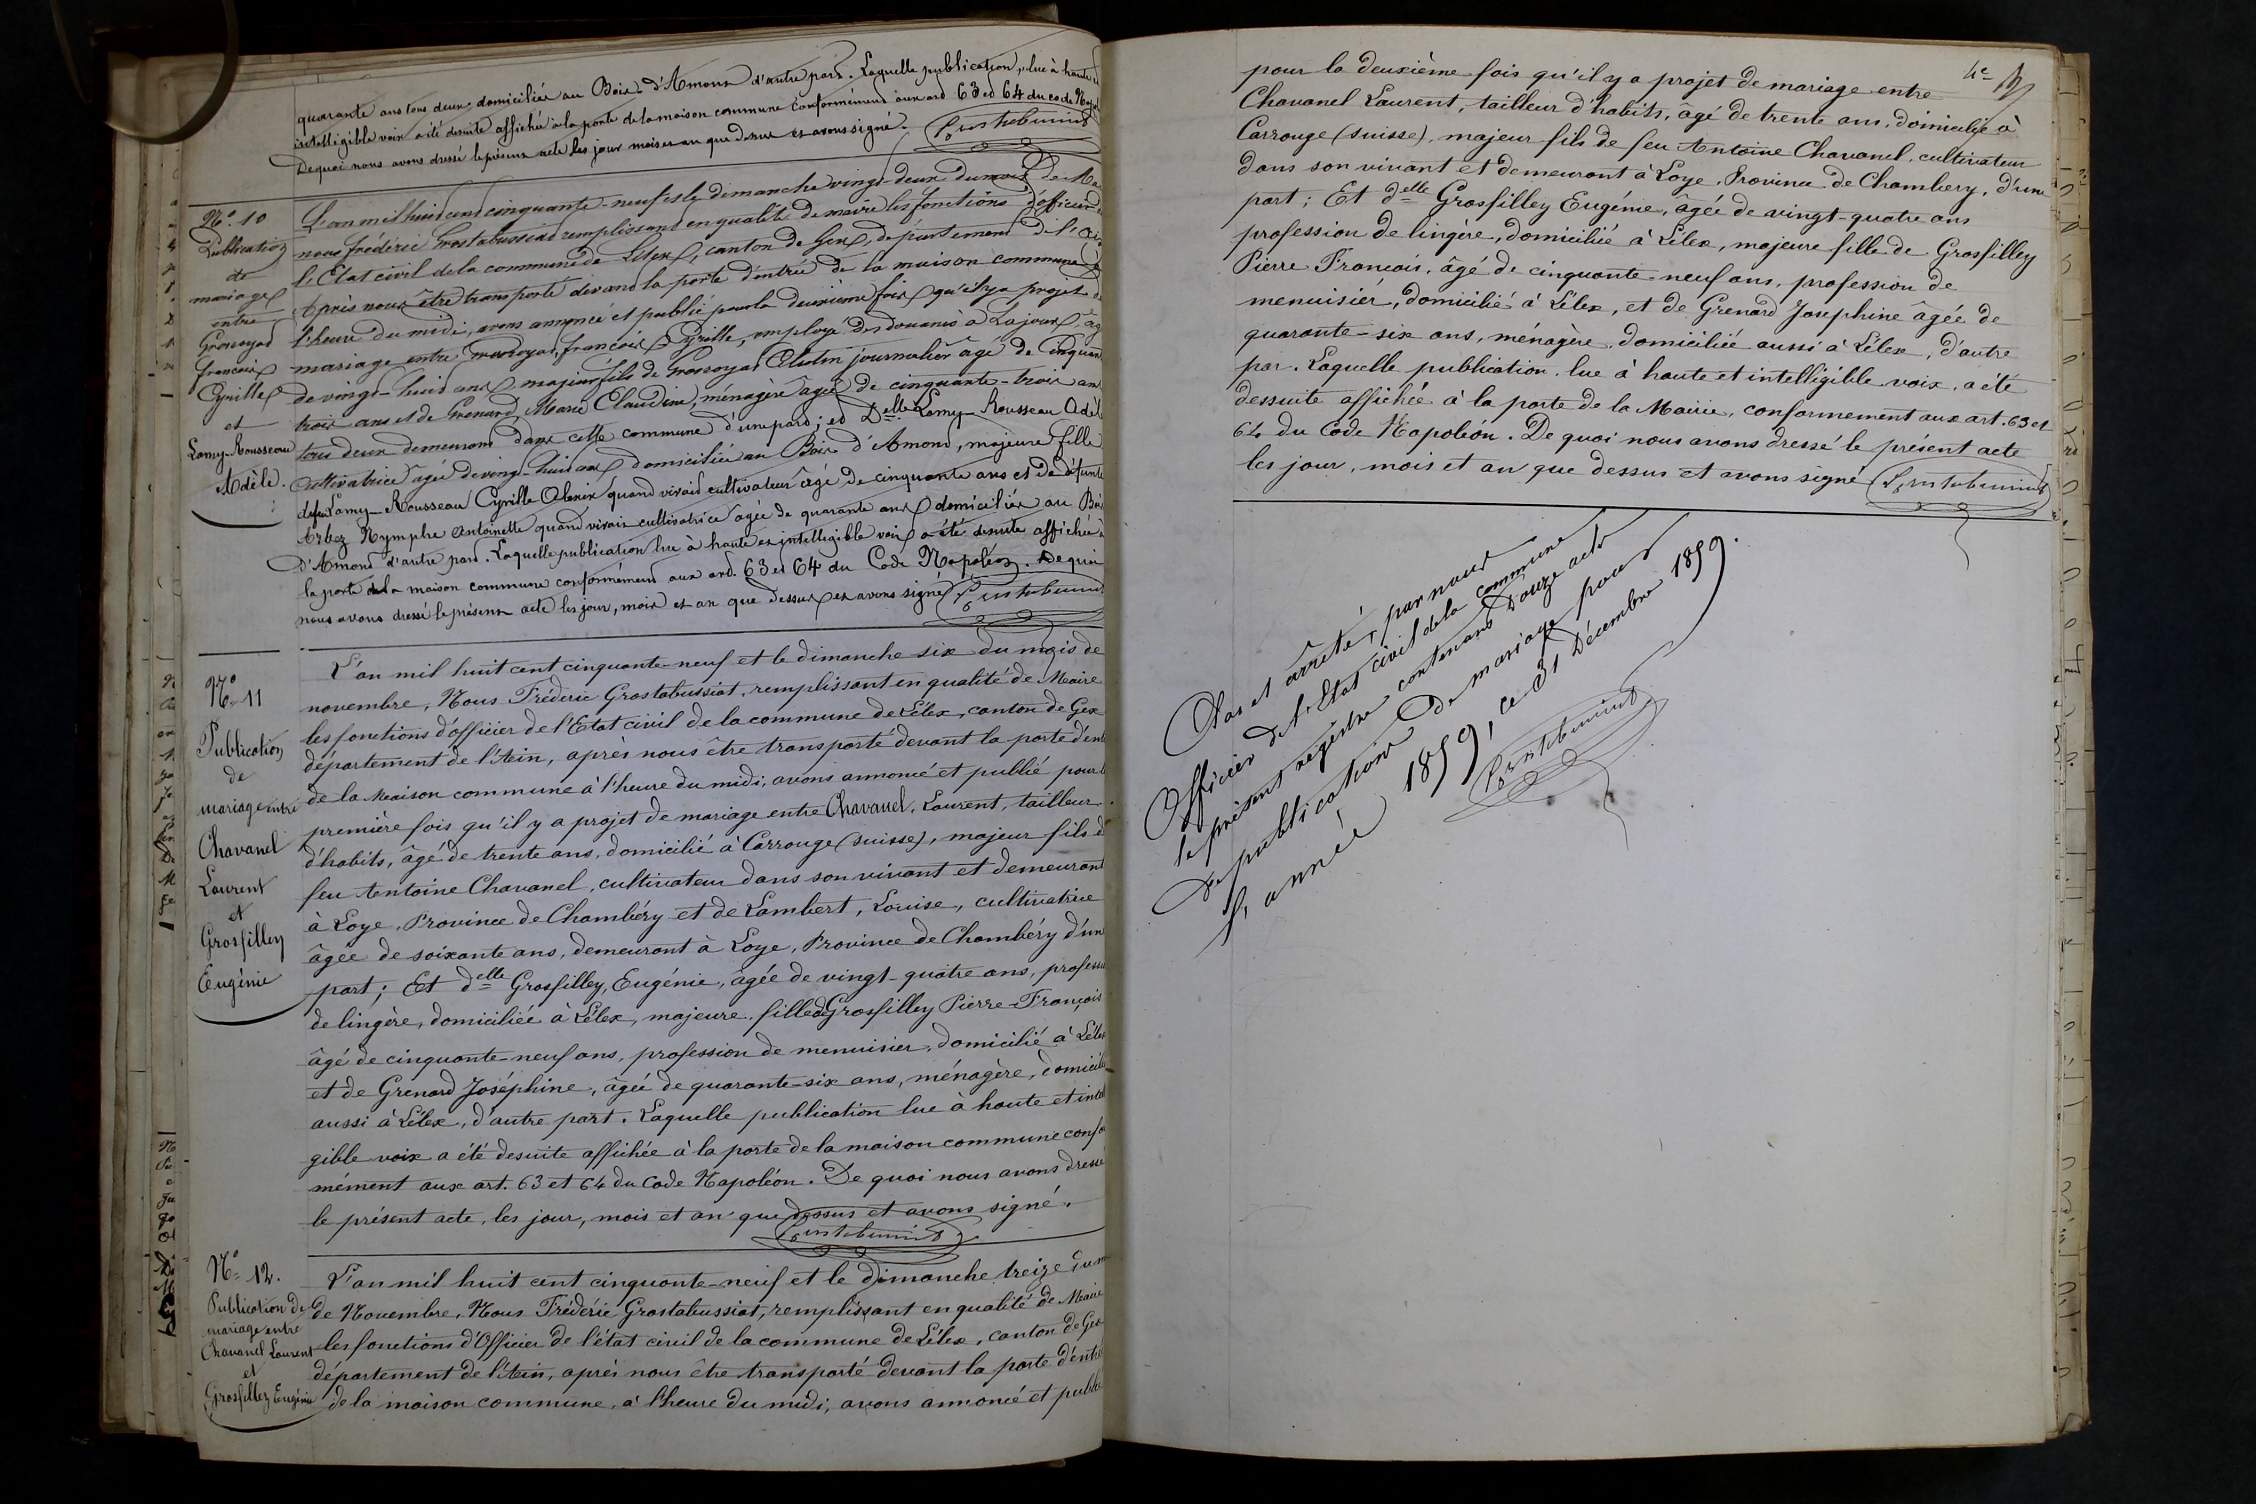 quarante ans tous deux domiciliés au Bois d'Amont d'autre part. Laquelle publication, lue à haute et
intelligible voix a été desuite affichée à la porte de la maison commune conformément aux art 63 et 64 du code Napol
De quoi nous avons dressé le présent acte les jour mois et an que dessus et avons signé.
N° 10
Publication
de
mariage
entre
Grosroyat
françois
Cyrille
et
Lamy-Rousseau
Adèle.
L'an mil huit cent cinquante-neuf et le dimanche vingt-deux du mois de Ma
nous frédéric Grostabussiat remplissant en qualité de maire les fonctions d'officier d
l'Etat civil de la commune de Lélex, canton de Gex, département de l'Ain
Après nous être transporté devant la porte d'entrée de la maison commune à
l'heure du midi, avons annoncé et publié pour la deuxième fois qu'il y a projet d
mariage entre Grosroyat, françois Cyrille, employé des douanes à Lajoux, âg
de vingt-huit ans, majeur fils de Grosroyat Célestin journalier âgé de cinquant
trois ans et de Grenard Marie Claudine, ménagère âgée de cinquante-trois an
tous deux demeurant dans cette commune d'une part; et Delle Lamy-Rousseau Adèl
cultivatrice âgée de vingt-huit ans domiciliée au Bois d'Amont, majeure fille
de feu Lamy-Rousseau Cyrille Alexis quand vivait cultivateur âgé de cinquante ans et de défunte
Arbez Nymphe Antoinette quand vivait cultivatrice âgée de quarante ans domiciliés au Bois
d'Amont d'autre part. Laquelle publication lue à haute et intelligible voix a été desuite affichée à
la porte de la maison commune conformément aux art. 63 et 64 du Code Napoléon. De quoi
nous avons dressé le présent acte les jour, mois et an que dessus et avons signé
N° 11
Publication
de
mariage entre
Chavanel
Laurent
et
Grosfilley
Eugénie
L'an mil huit cent cinquante-neuf et le dimanche six du mois de
novembre, Nous Fréderic Grostabussiat, remplissant en qualité de Maire
les fonctions d'officier de l'Etat civil de la commune de Lélex, canton de Gex
département de l'Ain, après nous être transporté devant la porte d'ent
de la Maison commune à l'heure du midi, avons annoncé et publié pour l
première fois qu'il y a projet de mariage entre Chavanel, Laurent, tailleur
d'habits, âgé de trente ans, domicilié à Carrouge (suisse), majeur fils d
feu Antoine Chavanel, cultivateur dans son vivant et demeurant
à Loye, Province de Chambéry et de Lambert, Louise, cultivatrice
âgée de soixante ans, demeurant à Loye, Province de Chambéry d'un
part; Et delle Grosfilley, Eugénie, âgée de vingt-quatre ans, profess
de lingère, domiciliée à Lélex, majeure fille de Grosfilley Pierre-François
âgé de cinquante-neuf ans, profession de menuisier, domicilié à Lélex
et de Grenard Joséphine, âgée de quarante-six ans, ménagère, domicili
aussi à Lélex, d'autre part. Laquelle publication lue à haute et intel
gible voix a été desuite affichée à la porte de la maison commune confo
mément aux art. 63 et 64 du Code Napoléon. De quoi nous avons dressé
le présent acte, les jour, mois et an que dessus et avons signé.
N° 12.
Publication de
mariage entre
Chavanel Laurent
et
Grosfilley Eugénie
L'an mil huit cent cinquante-neuf et le dimanche treize du m
de Novembre, Nous Fréderic Grostabussiat, remplissant en qualité de Maire
les fonctions d'Officier de l'état civil de la commune de Lélex, canton de Gex
département de l'Ain, après nous être transporté devant la porte d'entré
de la maison commune, à l'heure du midi; avons annoncé et publié
4e
pour la deuxième fois qu'il y a projet de mariage entre
Chavanel Laurent, tailleur d'habits, âgé de trente ans, domicilié à
Carrouge (suisse), majeur fils de feu Antoine Chavanel, cultivateur
dans son vivant et demeurant à Loye, Province de Chambery, d'une
part; Et delle Grosfilley Eugénie, âgée de vingt-quatre ans
profession de lingère, domiciliée à Lélex, majeure fille de Grosfilley
Pierre François, âgé de cinquante-neuf ans, profession de
menuisier, domicilié à Lélex, et de Grenard Josephine âgée de
quarante-six ans, ménagère, domiciliée aussi à Lélex, d'autre
par. Laquelle publication lue à haute et intelligible voix, a été
dessuite affichée à la porte de la Mairie, conformement aux art. 63 et
64 du Code Napoléon. De quoi nous avons dressé le présent acte
les jour, mois et an que dessus et avons signé
Clos et arrêté, par nous
Officier de l'Etat civil de la commune
le présent registre contenant Douze acts
de publication de mariage pour
l'année 1859, ce 31 Décembre 1859.